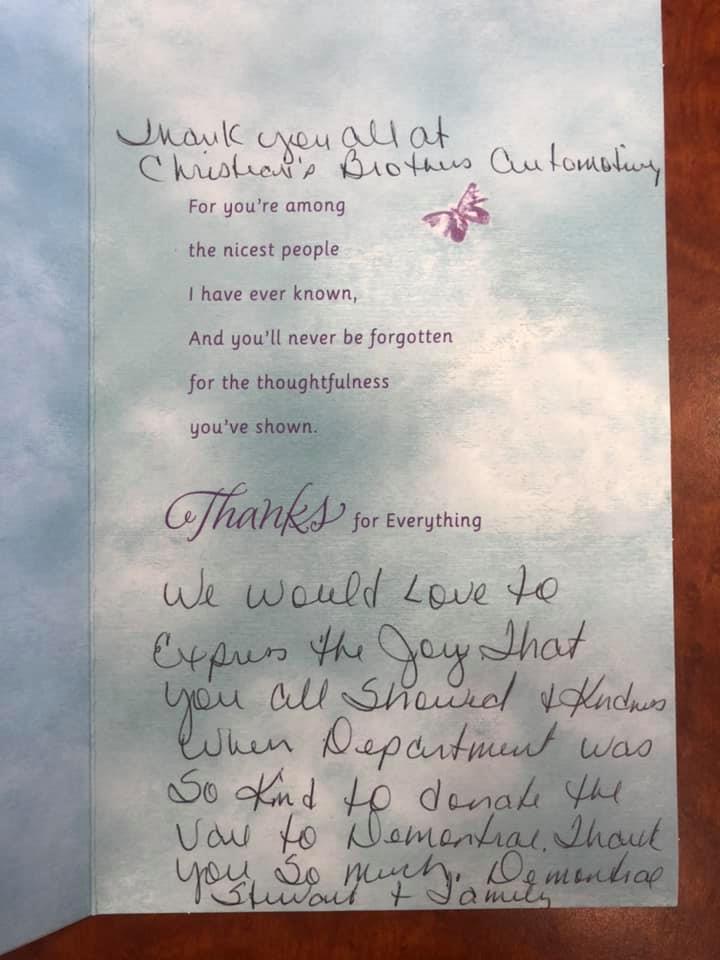 Thank you all at
Christian's Brothers Automotive
For you're among
the nicest people
I have ever known,
And you'll never be forgotten
for the thoughtfulness
you've shown.
Thanks for Everything
We would Love to
Express the Joy That
you all Showed & Kindness
when Department was
So Kind to donate the
Van to Demontrae. Thank
you so much. Demontrae
Stewart & Family